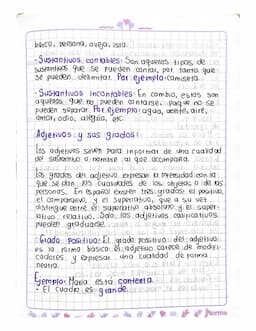 barco, persona, oveja, isla.
·Sustantivos contables: Son aquellos tipos de
sustantivos que se pueden contar, por tanto que
se pueden delimitar. Por ejemplo: camiseta.
·Sustantivos Incontables: En cambio, estos son
aquellos que no pueden contarse, porque no se
pueden separar. Por ejemplo: agua, aceite, aire,
amor, odio, alegría, etc.
Adjetivos y sus grados:
Los adjetivos sirven para informar de una cualidad
del sustantivo o nombre al que acompaña.
Los grados del adjetivo expresan la intensidad con la
que se dan las cualidades de los objetos o de las
personas. En español existen tres grados: el positivo,
el comparativo, y el superlativo, que a su vez
distingue entre el superlativo absoluto y el super-
lativo relativo. Solo los adjetivos calificativos
pueden graduarse.
·Grado Positivo: El grado positivo del adjetivo
es la forma básica: el adjetivo carece de modifi-
cadores y expresa una cualidad de forma
neutra.
Ejemplo: María está contenta.
• El cuadro es grande.
Norma